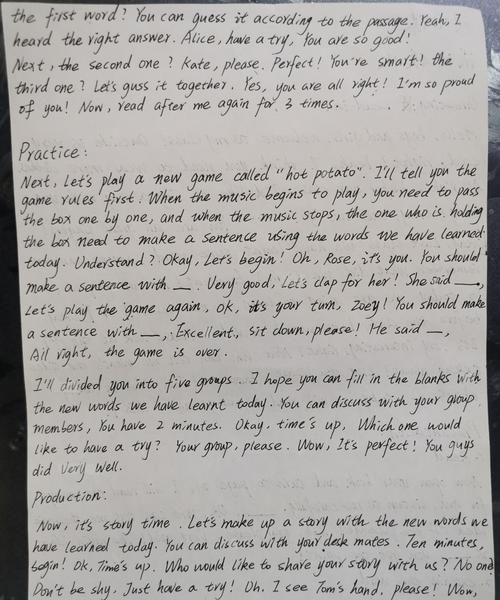 the first word? You can guess it according to the passage. Yeah, I
heard the right answer. Alice, have a try, You are so good!
Next, the second one? Kate, please. Perfect! You're smart! the
third one? Let's guss it together. Yes, you are all right! I'm so proud
of you! Now, read after me again for 3 times.
Practice:
Next, Let's play a new game called "hot potato". I'll tell you the
game rules first. When the music begins to play, you need to pass
the box one by one, and when the music stops, the one who is holding
the box need to make a sentence using the words we have learned
today. Understand? Okay, Let's begin! Oh, Rose, it's you. You should
make a sentence with __. Very good, Let's clap for her! She said __,
Let's play the game again, ok, it's your turn, Zoey! You should make
a sentence with __, Excellent, sit down, please! He said __,
All right, the game is over.
I'll divided you into five groups. I hope you can fill in the blanks with
the new words we have learnt today. You can discuss with your group
members, You have 2 minutes. Okay, time's up, Which one would
like to have a try? Your group, please. Wow, It's perfect! You guys
did very well.
Production:
Now, it's story time. Let's make up a story with the new words we
have learned today. You can discuss with your desk mates. Ten minutes,
begin! Ok, Time's up. Who would like to share your story with us? No one?
Don't be shy. Just have a try! Oh. I see Tom's hand, please! Wow,